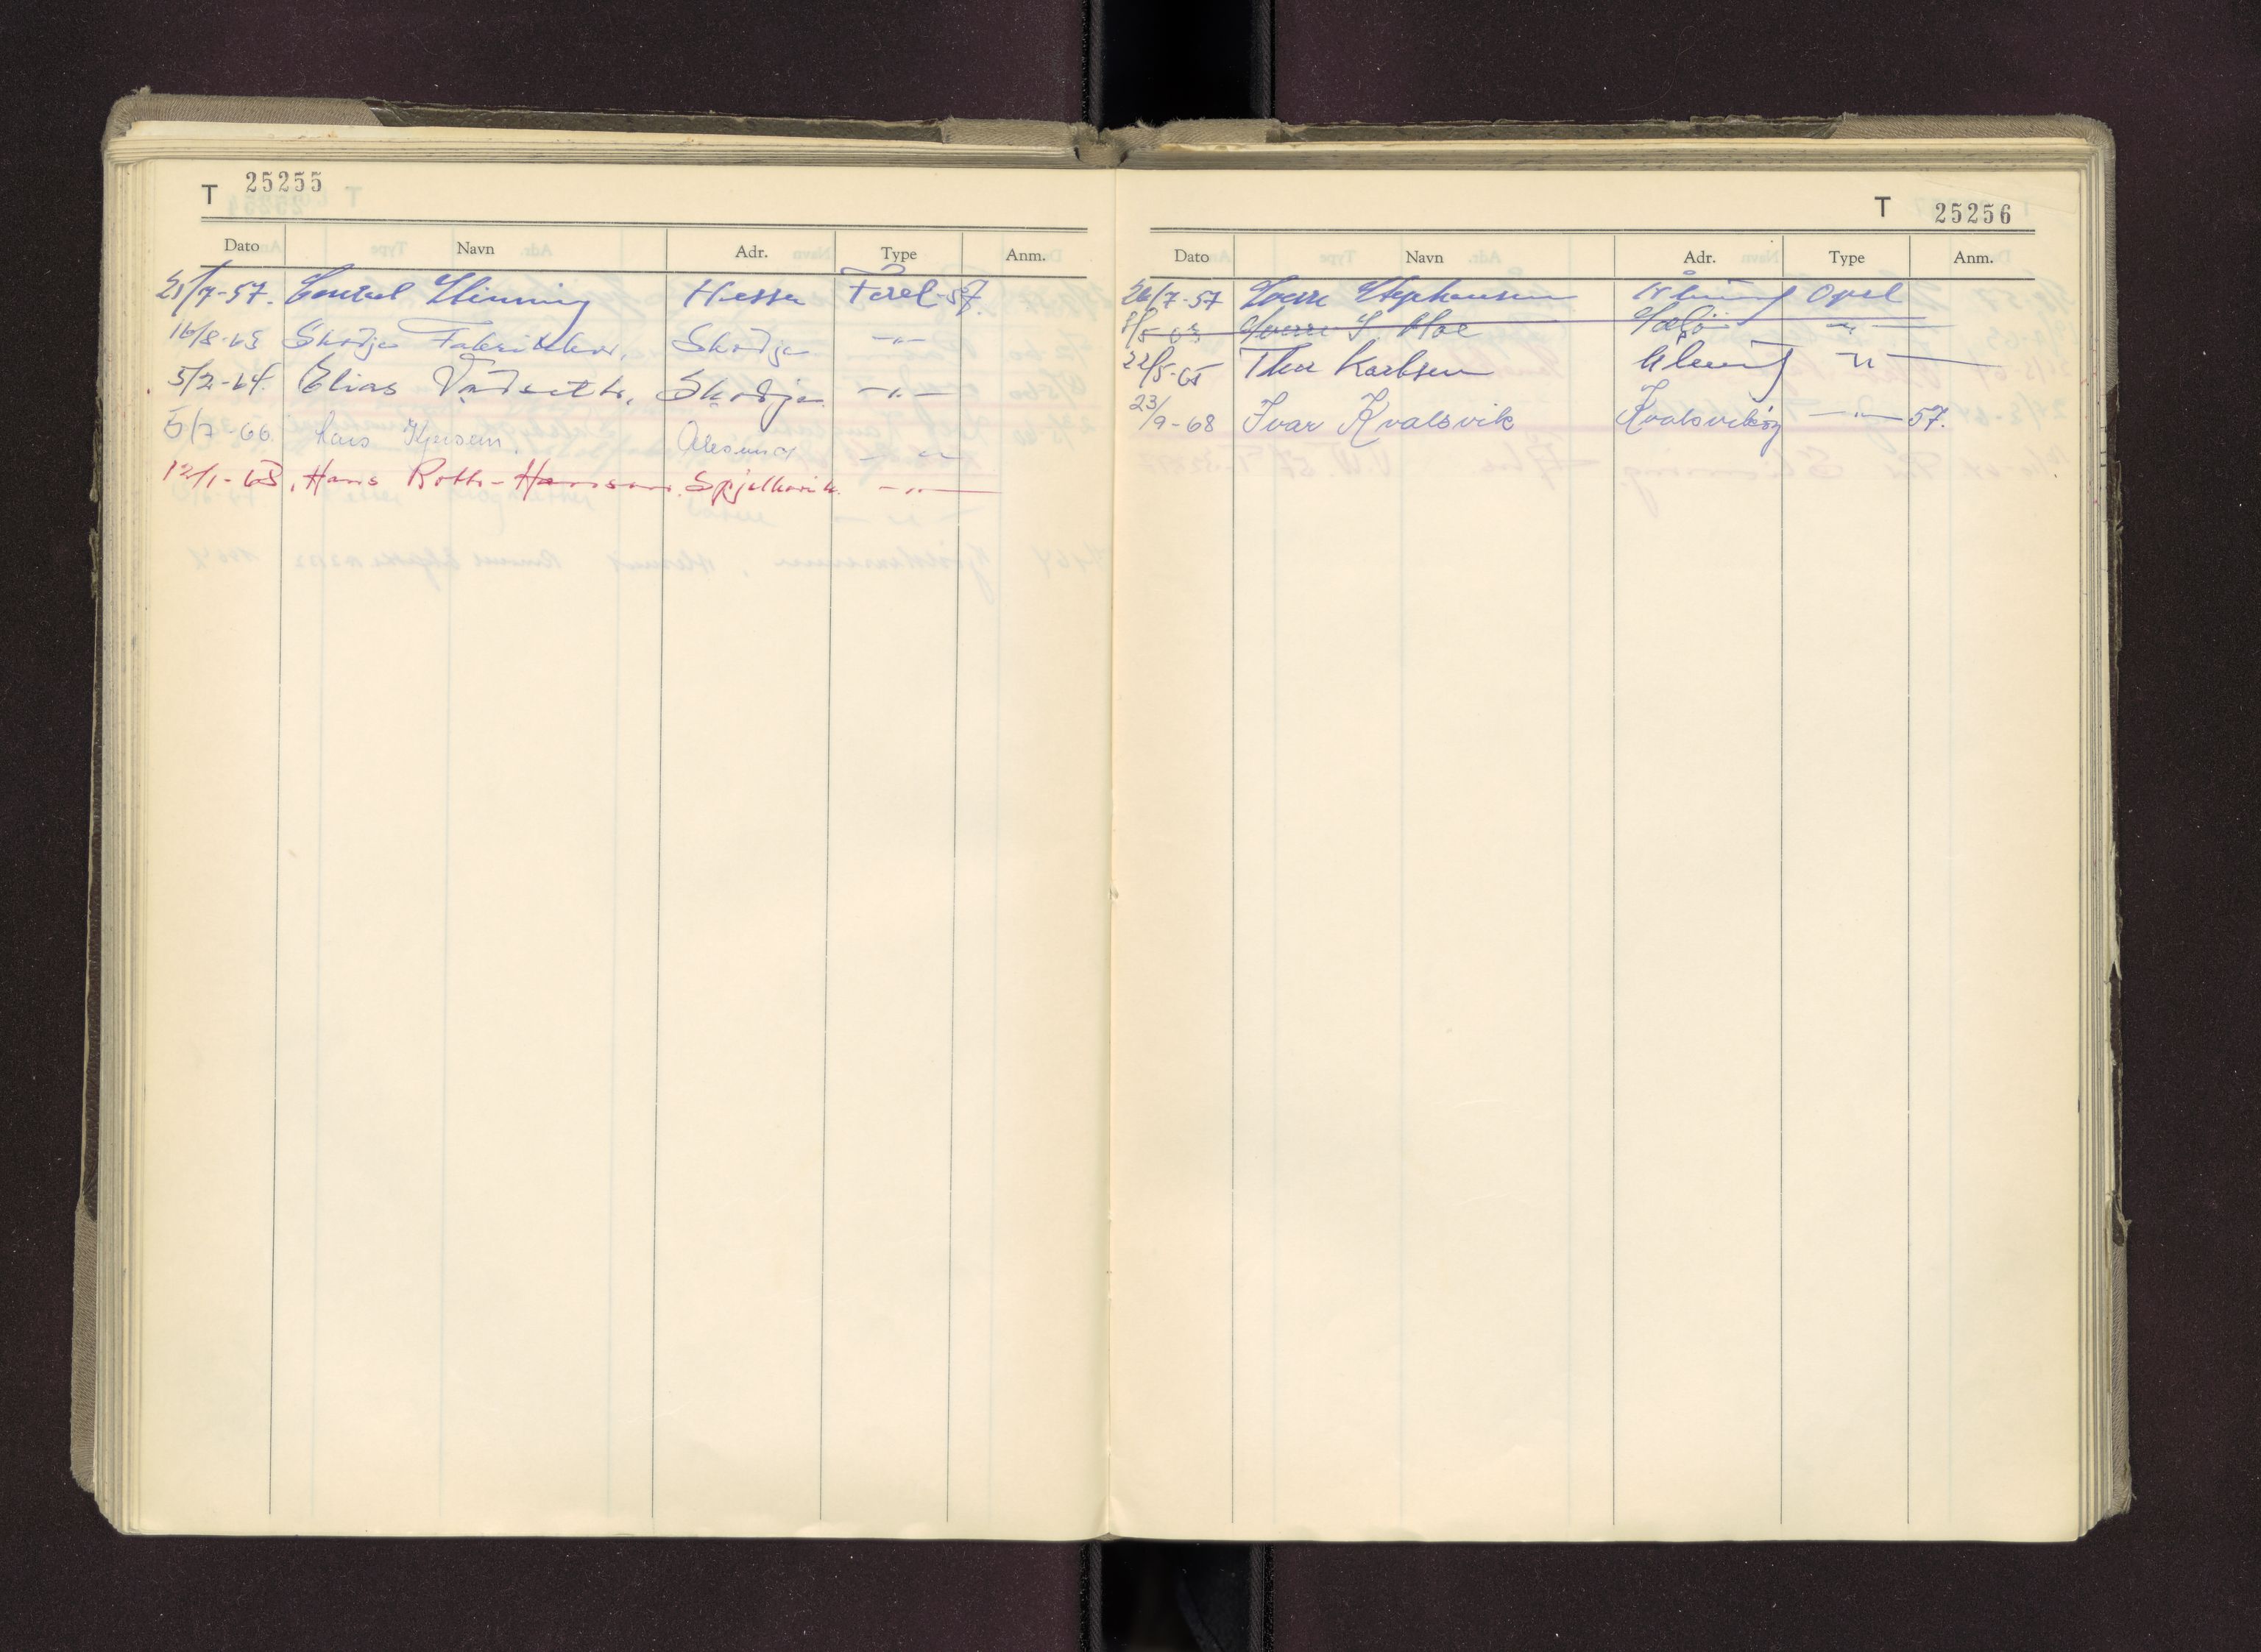 T 25255
Dato Navn Adr. Type Anm.
25/7-57. Slinning Hessa Ford-57.
16/8-63 Skodje Fabrikker, Skodje —"—
5/2-64. Elias Vadseth, Skodje —"—
5/7-66 Lars Ålesund — "
12/1-68, Hans Roth-Hanssen. Spjelkavik. —"—
T 25256
Dato Navn Adr. Type Anm.
26/7-57 Sverre Stephansen Ålesund Opel
8/5-63 Sverre J Moe —"—
22/5-65 Thor Karlsen Ålesund —"—
23/9-68 Ivar Kvalsvik Kvalsvikøy —"— 57.